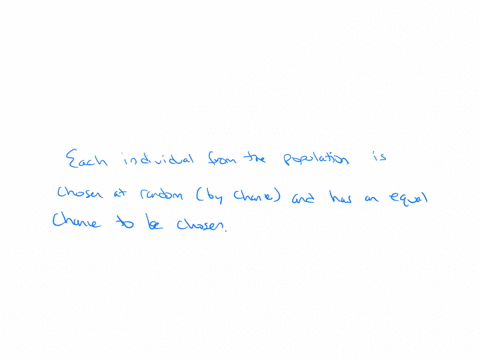 Each individual from the population is
chosen at random (by chance) and has an equal
chance to be chosen.